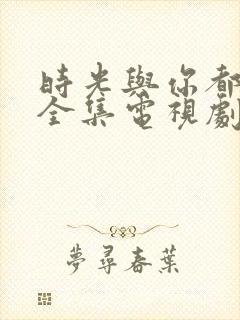 時光與你都
全集電視劇
夢尋春葉